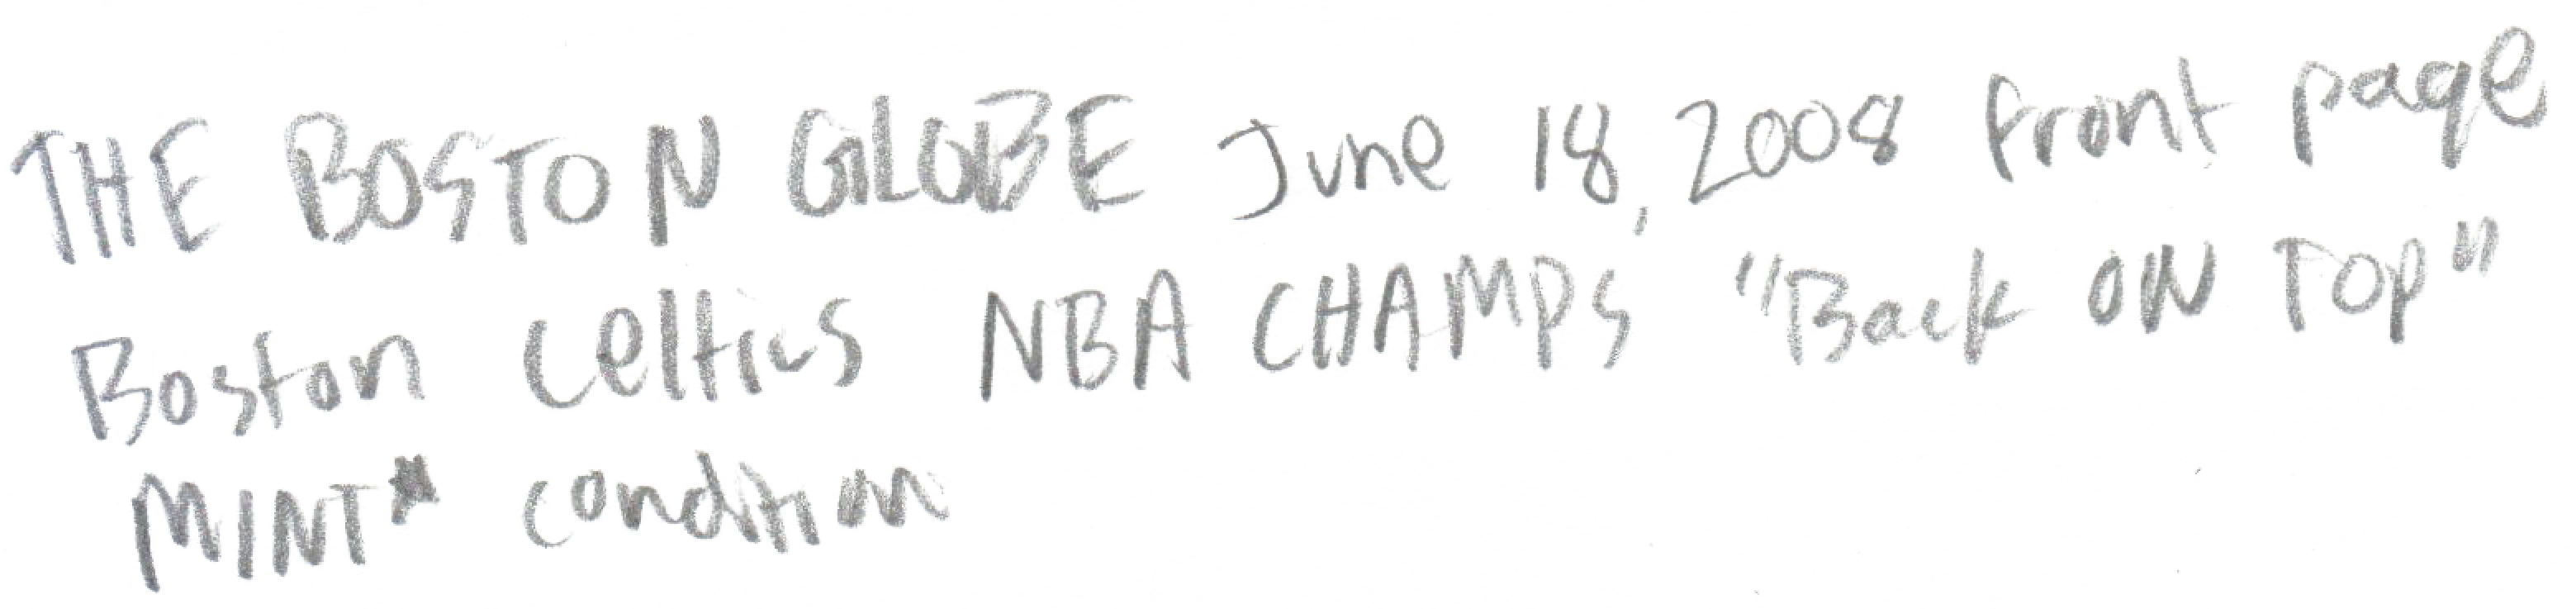 THE BOSTON GLOBE June 18, 2008 front page
Boston Celtics NBA CHAMPS "Back ON TOP"
MINT* condition